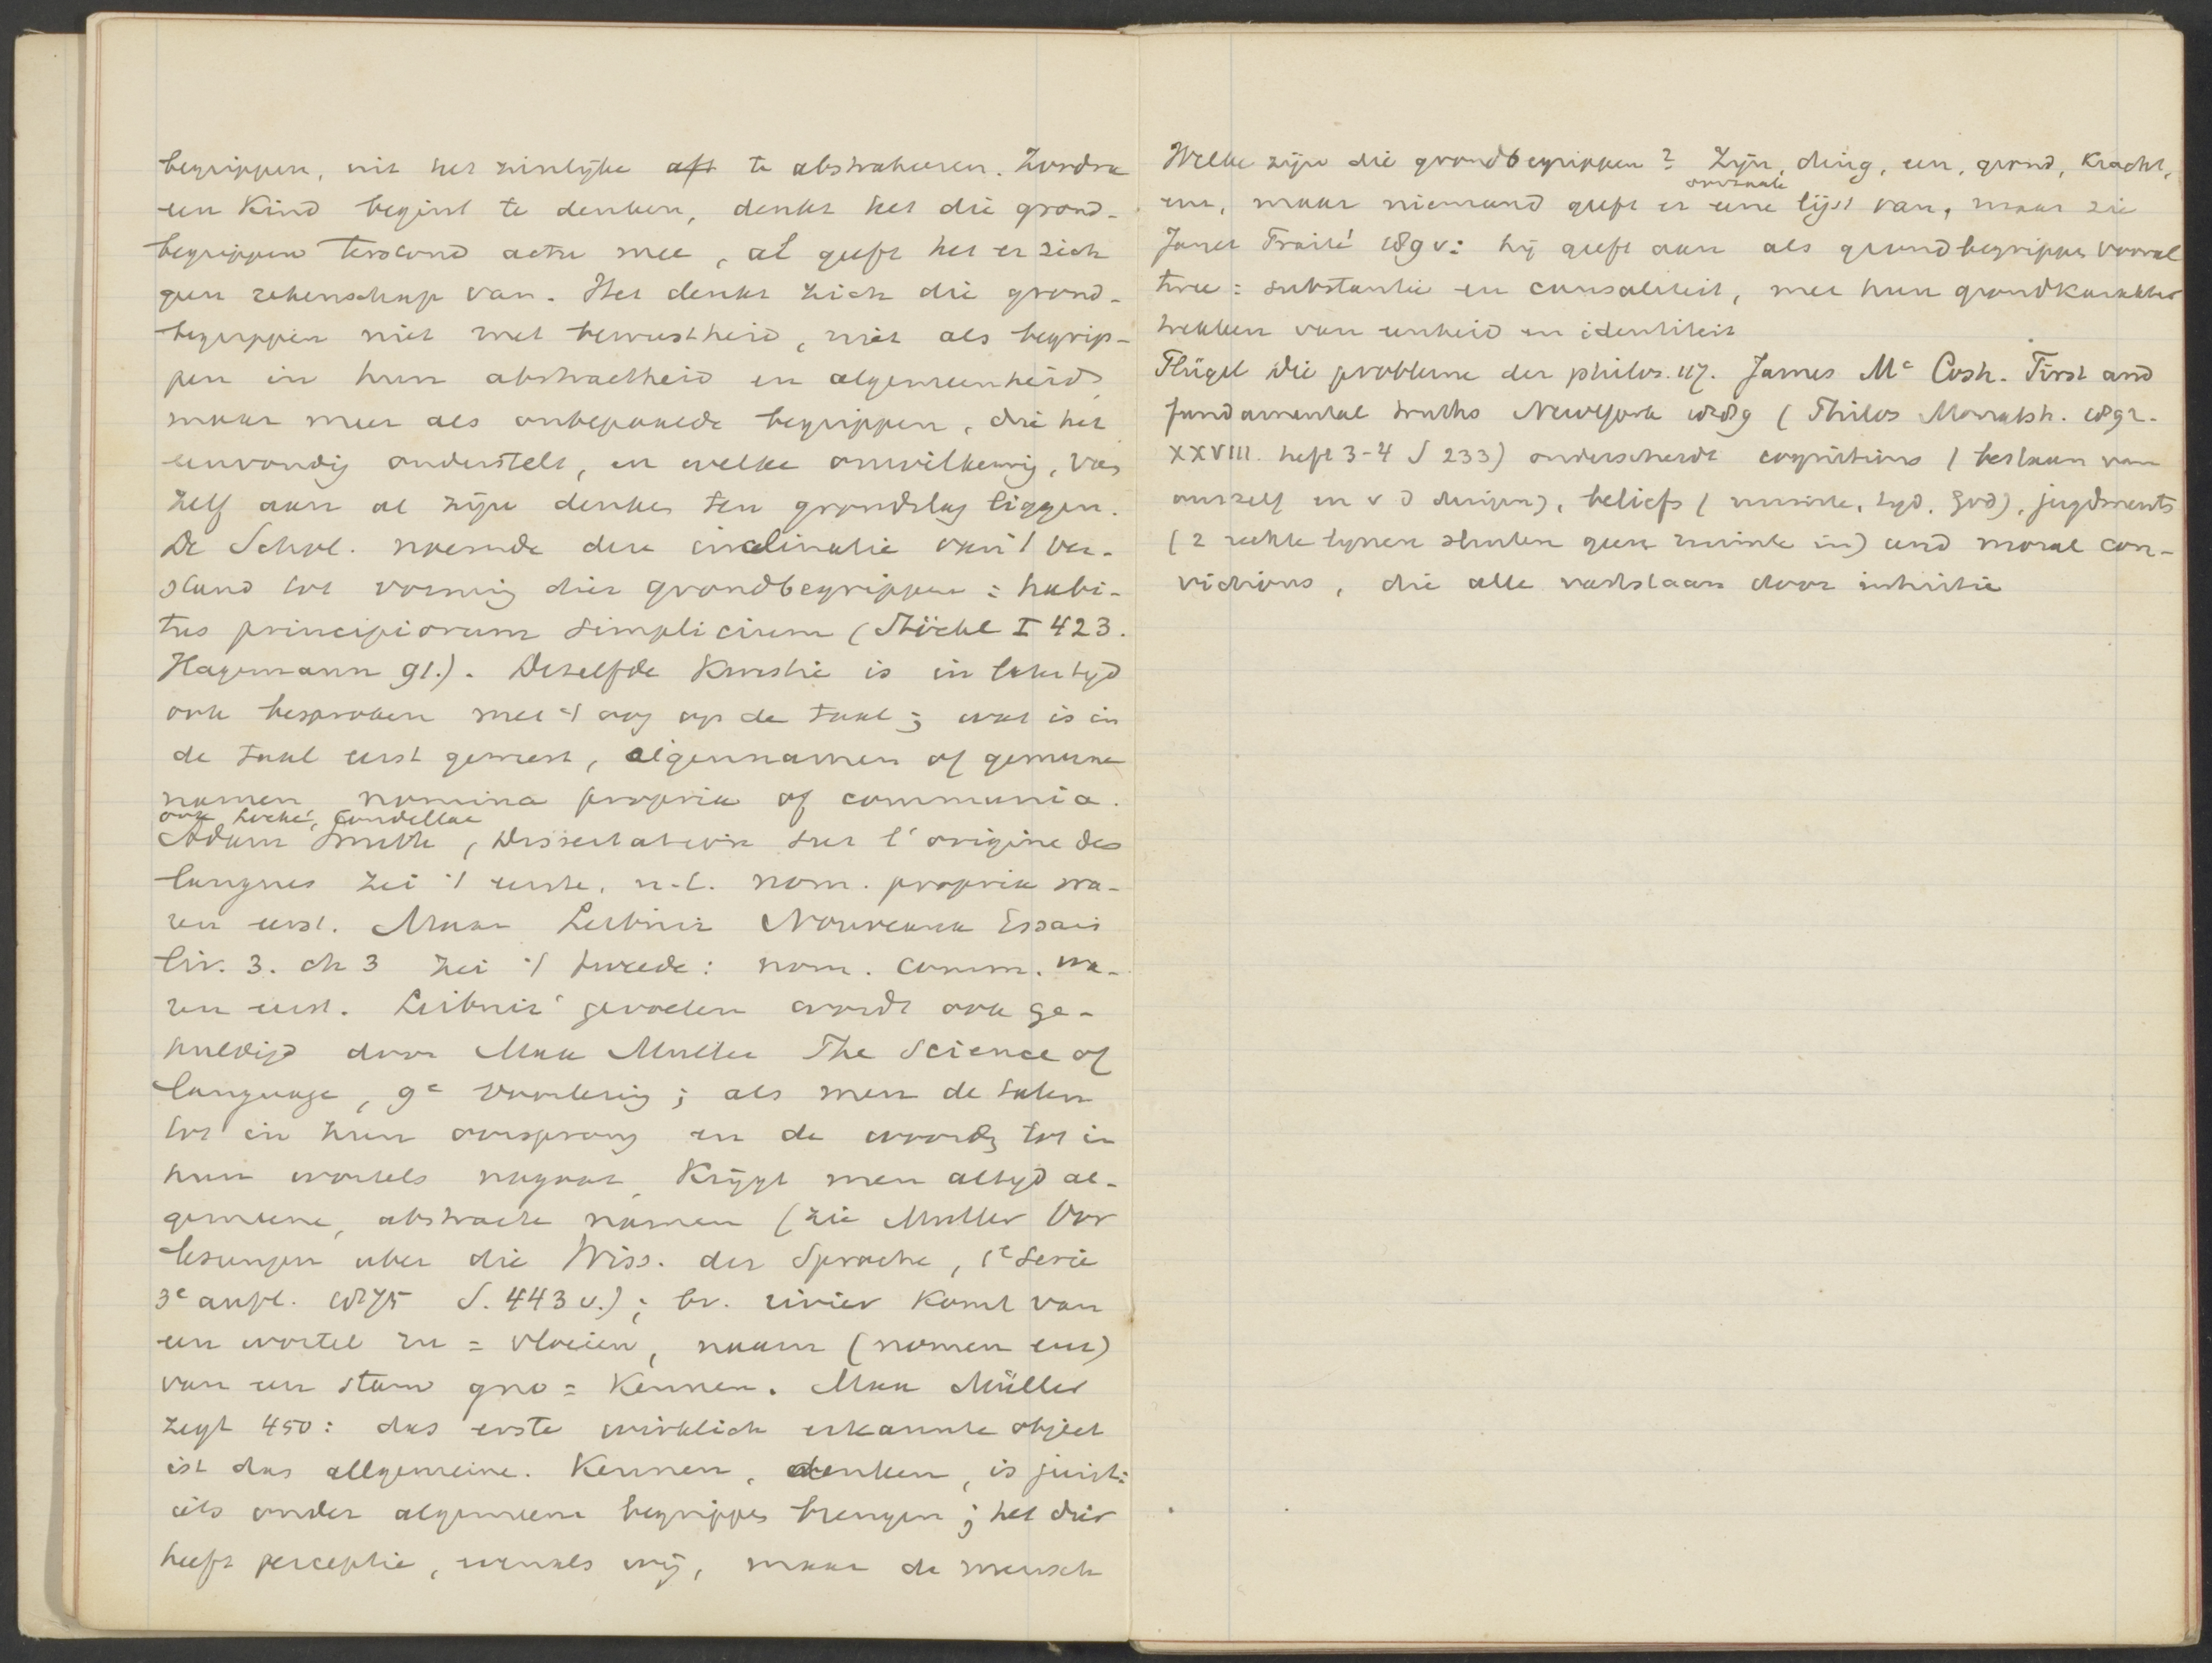 begrippen, uit het zinlijke aft te abstraheeren. Zoodra
een Kind begint te denken, denkt het die grond-
begrippen terstond actu mee, al geeft het er zich
geen rekenschap van. Het denkt zich die grond-
begrippen niet met bewustheid, niet als begrip-
pen in hun abstractheid en algemeenheid,
maar meer als onbepaalde begrippen, die het
eenvoudig onderstelt, en welke onwillekeurig, van
zelf aan al zijn denken ten grondslag liggen.
De Schol. noemde deze inclinatie van 't ver-
stand tot vorming dier grondbegrippen: habi-
tus principiorum simplicium (Stöckl I 423.
Hagemann 91.). Dezelfde Kwestie is in lateren tijd
ook besproken met 't oog op de taal; wat is in
de taal eerst geweest, eigennamen of gemeene
namen, nomina propria of communia.
ook Locke, Condillac
Adam Smith, Dissertation sur l'origine des
langues zei 't eerste, n.l. nom. propria wa-
ren eerst. Maar Leibniz Nouveaux Essais
liv. 3. ch 3 zei 't tweede: nom. comm. wa-
ren eerst. Leibniz' gevoelen wordt ook ge-
huldigd door Max Muller The Science of
language, 9e voorlezing; als men de talen
tot in hun oorsprong en de woorden tot in
hun wortels nagaat, Krijgt men altijd al-
gemeene, abstracte namen (zie Muller Vor
lesungen uber die Wiss. der Sprache, 1e Serie
3e aufl. 1875 S. 443 v.); bv. rivier Komt van
een wortel ru = vloeien, naam (nomen enz)
van een stam gno = Kennen. Max Müller
zegt 450: das erste wirklich erkannte object
ist das allgemeine. Kennen, denken, is juist:
iets onder algemeene begrippen brengen; het dier
heeft perceptie, evenals wij, maar de mensch
Welke zijn die grondbegrippen? Zijn, ding, een, grond, Kracht,
enz, maar niemand geeft er eene lijst van, maar zie
Janet Traité 189 v: hij geeft aan als grondbegrippen vooral
twee: substantie en causaliteit, met hun grondkarakter
trekken van eenheid en identiteit
Flügel Die probleme der philos. 117. James Mc Cosh. First and
fundamental truths NewYork 1889 (Philos Monatsh. 1892.
XXVIII. heft 3-4 S 233) onderscheidt cognitions (bestaan van
onszelf en v d dingen), beliefs (ruimte, tijd, God), jugdments
(2 rechte lijnen sluiten geen ruimte in) und moral con-
victions, die alle vaststaan door intuitie